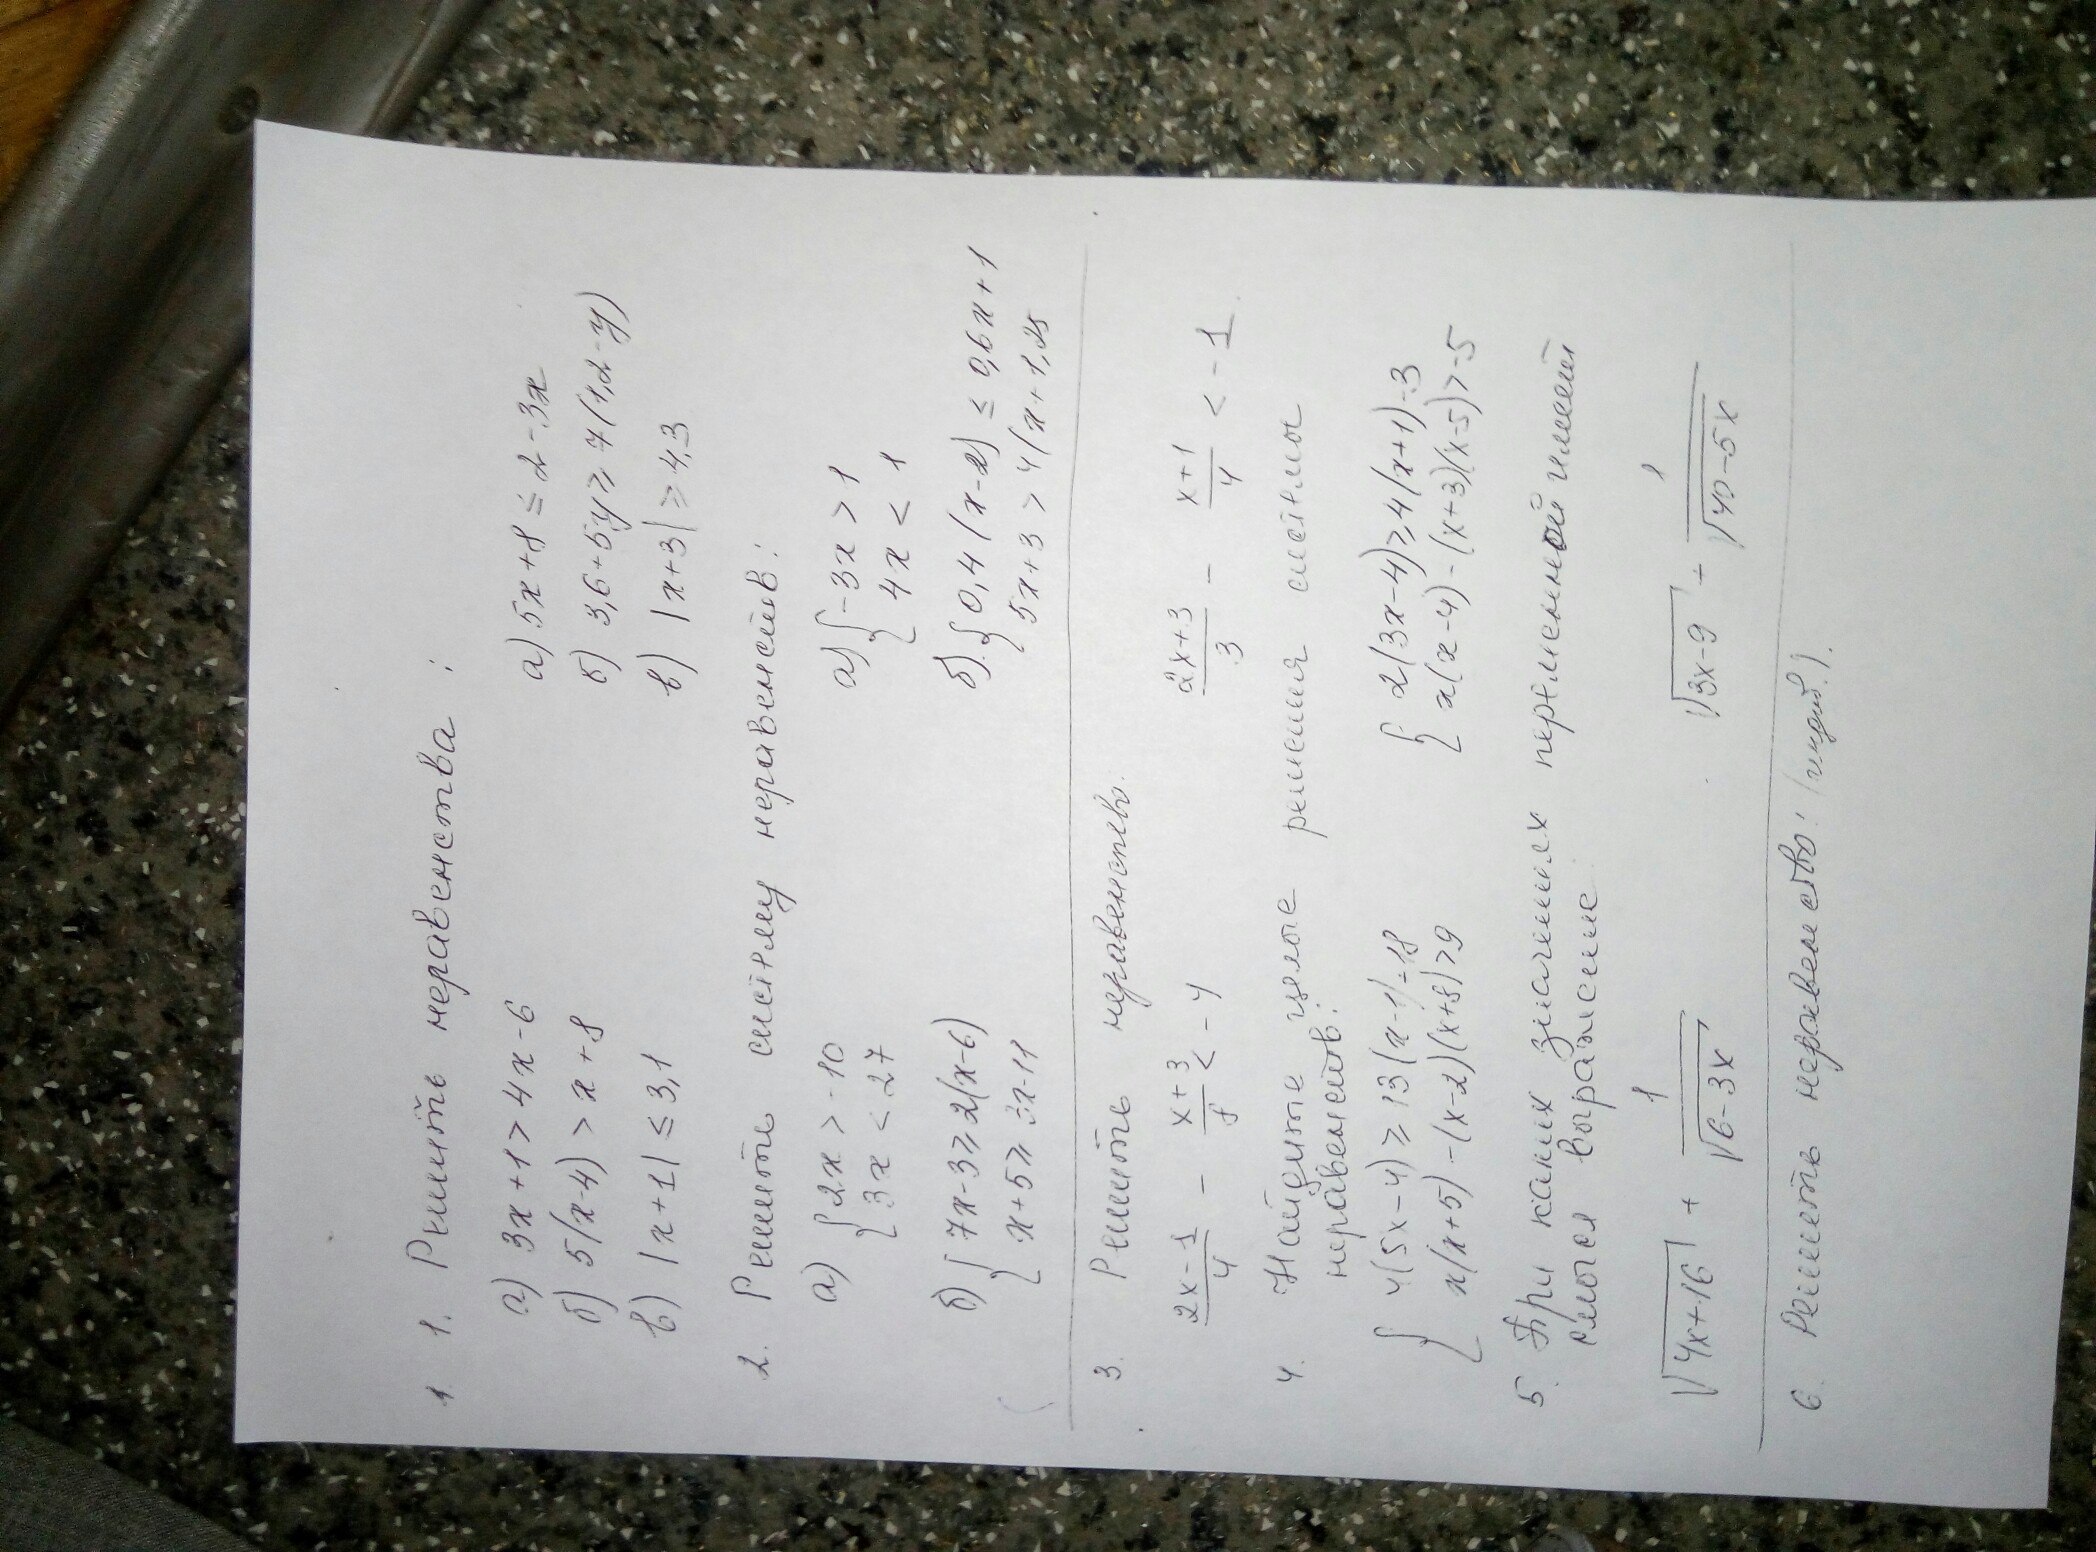 1. 1. Решить неравенства :
а) 3x+1>4x-6 а) 5x+8 ≤ 2-3x
б) 5(x-4) > x+8 б) 3,6+5y ≥ 7(1,2-y)
в) |x+1| ≤ 3,1 в) |x+3| ≥ 4,3
2. Решите систему неравенств:
а) { 2x > -10 а) { -3x > 1
3x < 27 4x < 1
б) { 7x-3 ≥ 2(x-6) б) { 0,4(x-2) ≤ 0,6x+1
x+5 ≥ 3x-11 5x+3 > 4(x+1,25
3. Решить неравенство.
2x-1/4 - x+3/8 < -4 2x+3/3 - x+1/4 < -1
4. Найдите целые решения системы
неравенств:
{ 4(5x-4) ≥ 13(x-1)-18 { 2(3x-4) ≥ 4(x+1)-3
x(x+5)-(x-2)(x+8)>9 x(x-4)-(x+3)(x-5)>-5
5. При каких значениях переменной имеет
смысл выражение
√4x+16 + 1/√6-3x √3x-9 + 1/√40-5x
6. Решить неравенство: (индив.).